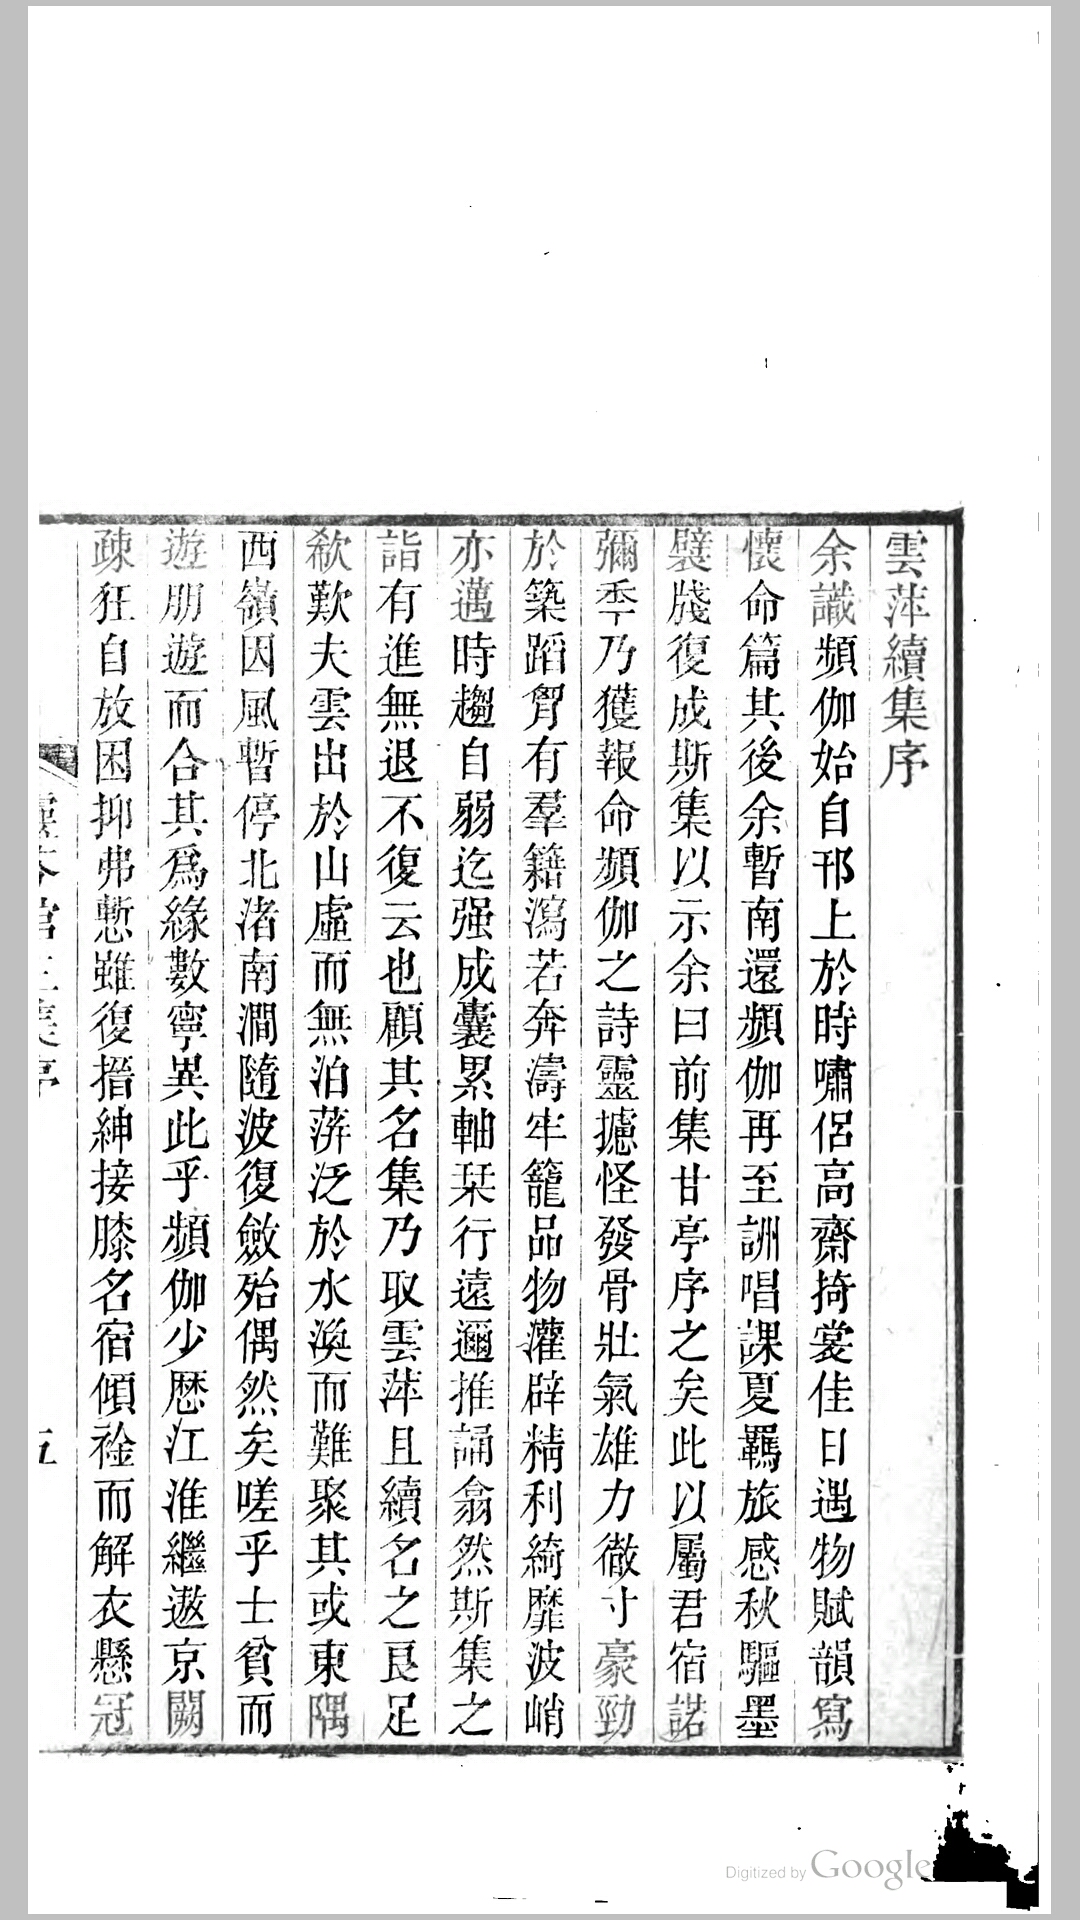 雲萍續集序
余識頻伽始自邗上於時嘯侶高齋掎裳佳日遇物賦韻寫
懷命篇其後余暫南還頻伽再至詶唱課夏羈旅感秋驅墨
襞牋復成斯集以示余曰前集甘亭序之矣此以屬君宿諾
彌秊乃獲報命頻伽之詩靈攄怪發骨壯氣雄力徹寸豪勁
於築蹈胷有羣籍瀉若奔濤牢籠品物灌辟精利綺靡波峭
亦邁時趨自弱迄强成囊累軸栞行遠邇推誦翕然斯集之
詣有進無退不復云也顧其名集乃取雲萍且續名之良足
欷歎夫雲出於山虛而無泊蓱泛於水渙而難聚其或東隅
西嶺因風暫停北渚南澗隨波復斂殆偶然矣嗟乎士貧而
遊朋遊而合其爲緣數寧異此乎頻伽少歷江淮繼遨京闕
疎狂自放困抑弗慙雖復搢紳接膝名宿傾襟而解衣懸冠
五
Digitized by Google